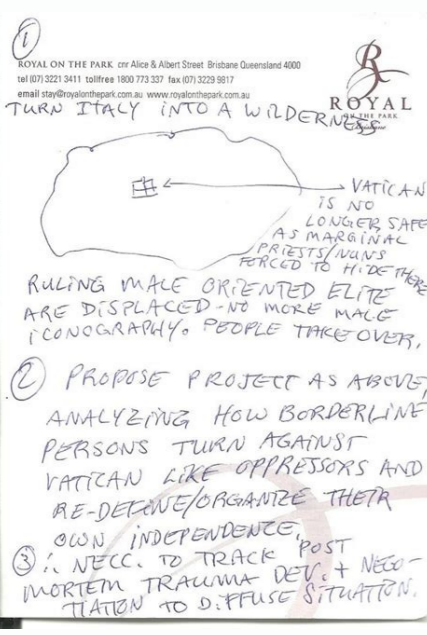 ①
ROYAL ON THE PARK cnr Alice & Albert Street Brisbane Queensland 4000
tel (07) 3221 3411 tollfree 1800 773 337 fax (07) 3229 9817
email stay@royalonthepark.com.au www.royalonthepark.com.au
R
ROYAL
ON THE PARK
Brisbane
TURN ITALY INTO A WILDERNESS
VATICAN
IS NO
LONGER SAFE
AS MARGINAL
PRIESTS/NUNS
FORCED TO HIDE THERE
RULING MALE ORIENTED ELITE
ARE DISPLACED - NO MORE MALE
ICONOGRAPHY. PEOPLE TAKE OVER.
② PROPOSE PROJECT AS ABOVE,
ANALYZING HOW BORDERLINE
PERSONS TURN AGAINST
VATICAN LIKE OPPRESSORS AND
RE-DEFINE/ORGANIZE THEIR
OWN INDEPENDENCE.
③ ∴ NECC. TO TRACK POST
MORTEM TRAUMA DEV. + NEGO-
TIATION TO DIFFUSE SITUATION.